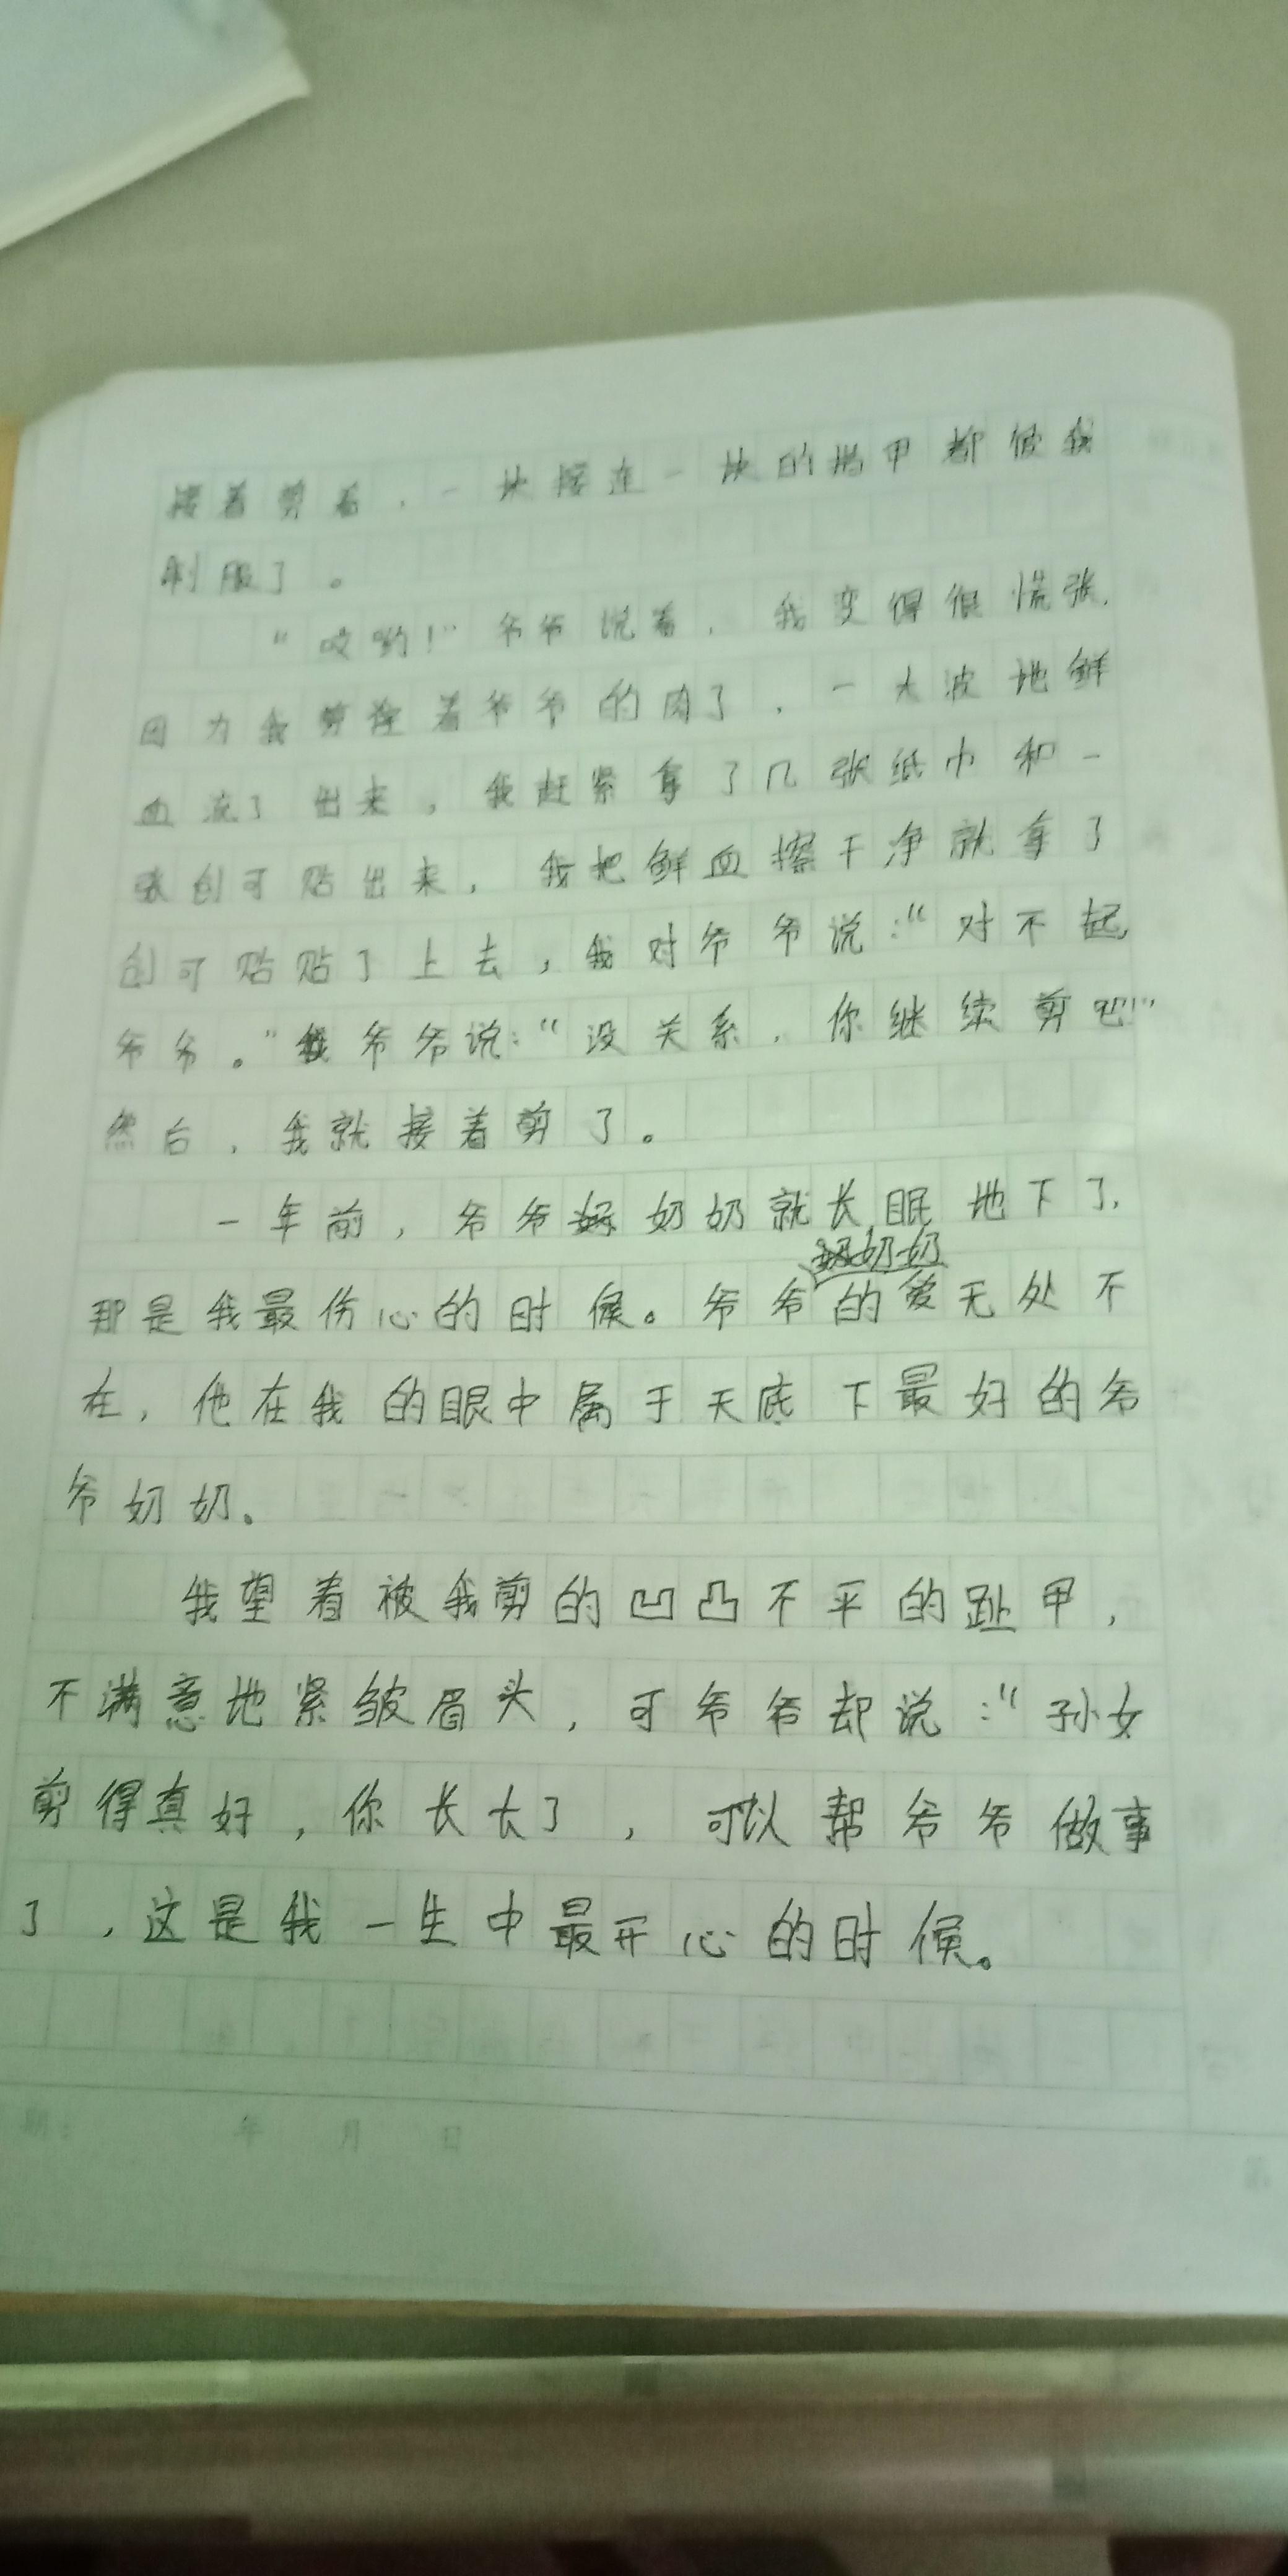 接着剪着，一块接连一块的指甲都使我
制服了。
“哎哟！”爷爷说着，我变得很慌张，
因为我剪着爷爷的肉了，一大波地鲜
血流了出来，我赶紧拿了几张纸巾和一
张创可贴出来，我把鲜血擦干净就拿了
创可贴贴了上去，我对爷爷说：“对不起
爷爷。”爷爷说：“没关系，你继续剪吧！”
然后，我就接着剪了。
一年前，爷爷奶奶就长眠地下了，
奶奶
那是我最伤心的时候。爷爷的爱无处不
在，他在我的眼中属于天底下最好的爷
爷奶奶。
我望着被我剪的凹凸不平的趾甲，
不满意地紧皱眉头，可爷爷却说：“孙女
剪得真好，你长大了，可以帮爷爷做事
了，这是我一生中最开心的时候。
期： 年 月 日
第